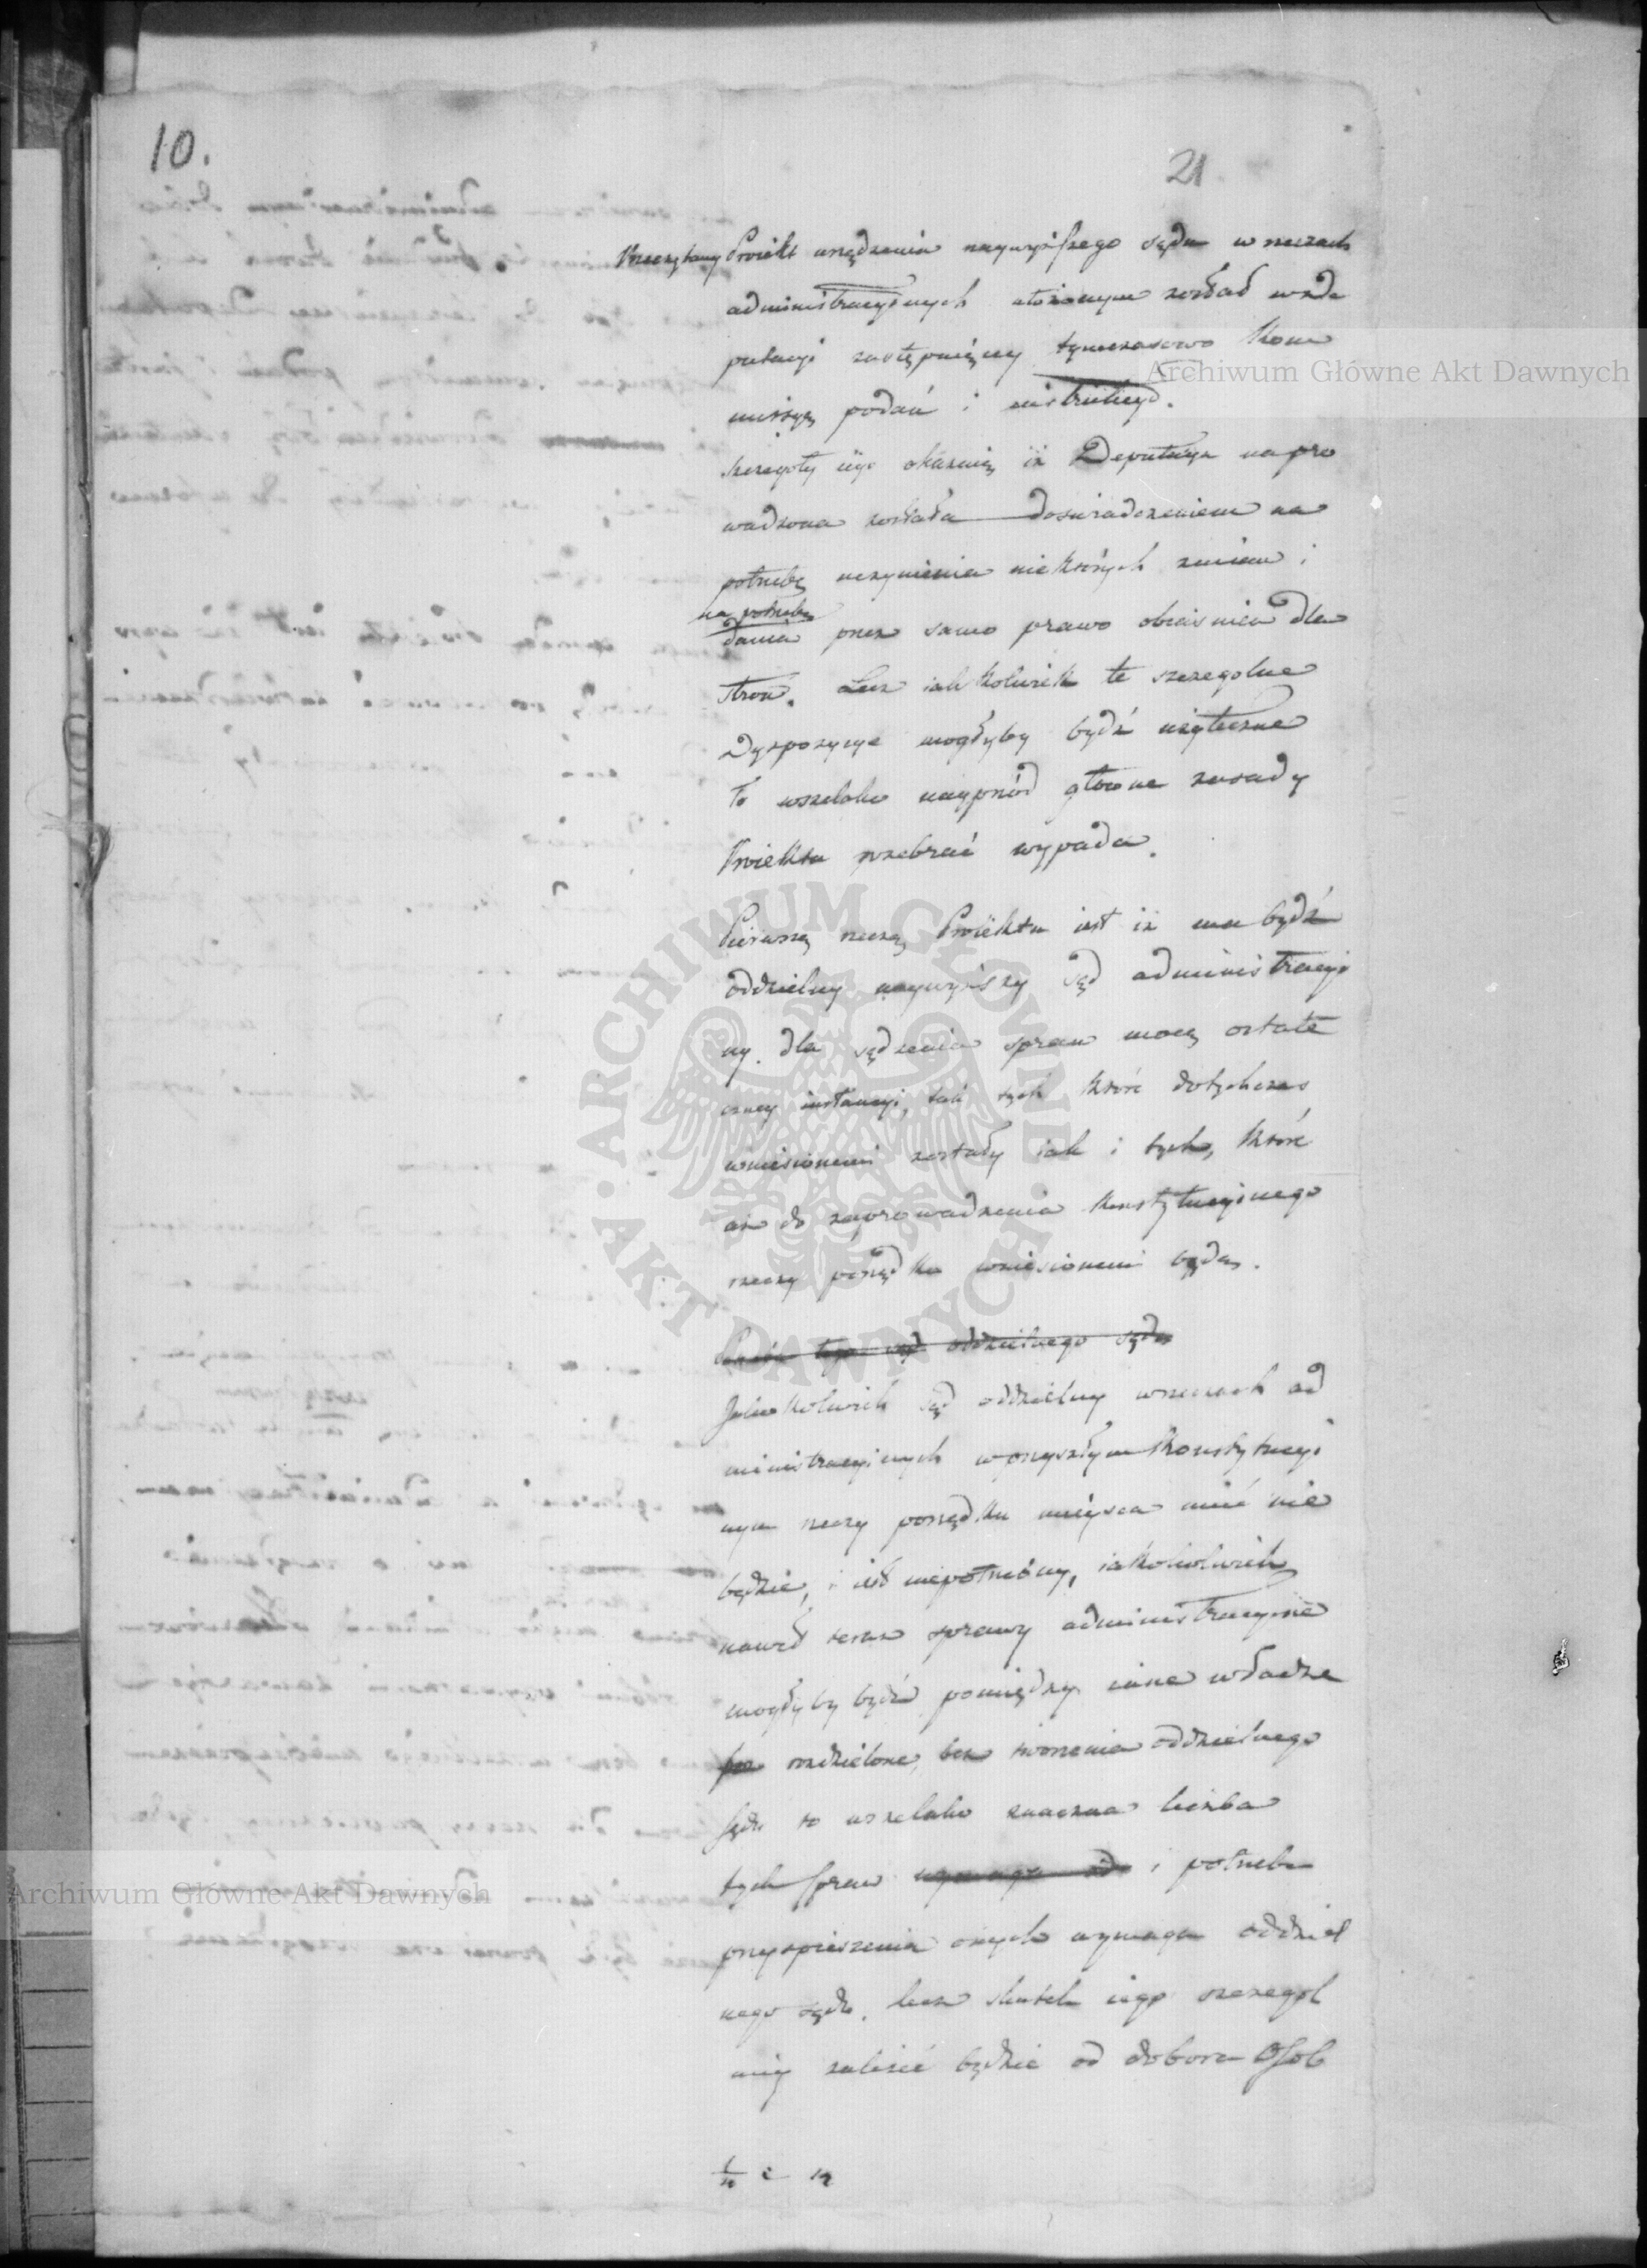 10.
21
Przeczytany Proiekt urządzenia naywyższego sądu w rzeczach
administracyinych ułożonym został w de
putacyi zastępuiącey tymczasowo Kom
missyę podań i instrukcyi.
szczegóły iego okazuią iż Deputacya napro
wadzona została doswiadczeniem na
potrzebę uczynienia niektórych zmian i
na potrzebę
dania przez samo prawo obiaśnień dla
stron. Lecz iakkolwiek te szczegolne
Dyspozycye mogłyby bydź użyteczne
to wszelako nayprzód główne zasady
Proiektu rozebrać wypada.
Pierwszą rzeczą Proiektu iest iż ma bydź
oddzielny naywyższy Sąd administracyi
ny dla sądzenia spraw mocą ostate
czney instancyi, tak tych które dotychczas
wniesionemi zostały iak i tych, które
aż do zaprowadzenia Konstytucyinego
rzeczy porządku wniesionemi będą.
oddzielnego sądu
Jakokolwiek Sąd oddzielny w rzeczach ad
ministracyinych w przyszłym Konstytucyi
nym rzeczy porządku mieysca mieć nie
będzie, i iest niepotrzebny, iakokolwiek
nawet teraz sprawy administracyine
mogłyby bydź pomiędzy inne władze
rozdzielone, bez tworzenia oddzielnego
Sądu to wszelako znaczna liczba
tych spraw wymaga i potrzeba
przyspieszenia onych wymaga oddziel
nego sądu. lecz skutek iego szczegól
niey zależeć będzie od doboru Osob
Archiwum Główne Akt Dawnych
Archiwum Główne Akt Dawnych
ARCHIWUM GŁÓWNE · AKT DAWNYCH ·